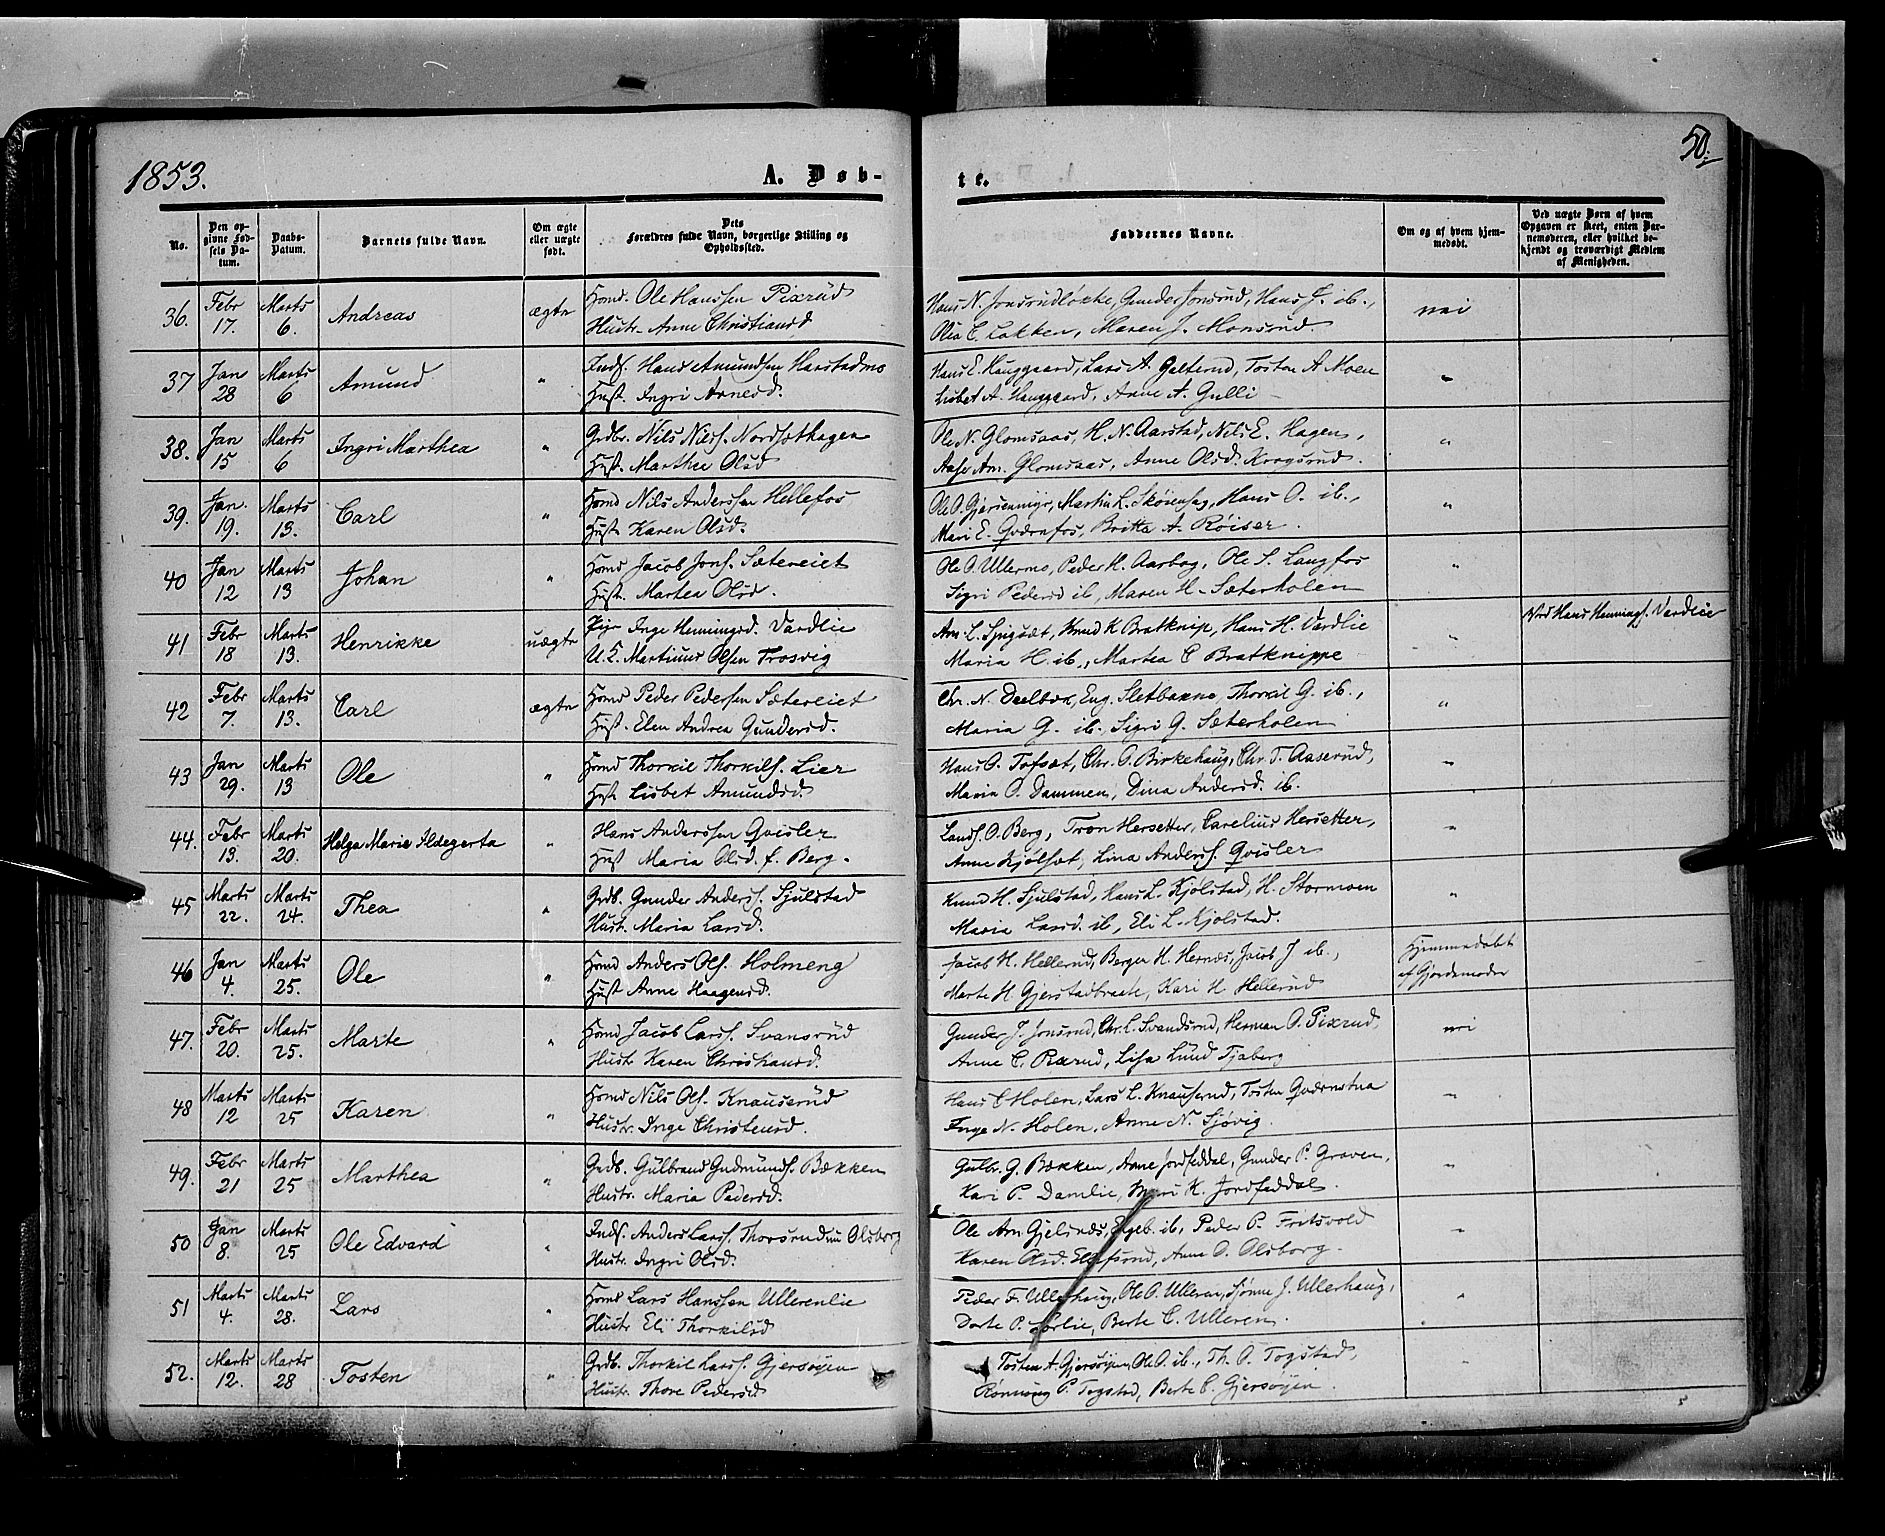 1853.
A. Døb-
te.
50.
No.
Den opgivne Fødsels Datum.
Daabs-Datum.
Barnets fulde Navn.
Om ægte eller uægte født.
Dets Forældres fulde Navn, borgerlige Stilling og Opholdssted.
Faddernes Navne.
Om og af hvem hjemmedøbt.
Ved uægte Børn af hvem Opgaven er skeet, enten Barnemoderen, eller hvilket bekjendt og troværdigt Medlem af Menigheden.
36. Febr 17. Marts 6. Andreas ægte Hmd. Ole Hanssen Pixrud
Hustr. Anne Christiansd
Hans N. Jonsrudløkke, Gunder Jonsrud, Hans J. ib.,
Olea C. Løkken, Maren J. Monsrud. nei
37 Jan 28 Marts 6 Amund " Inds. Hans Amundsen Harstadmo
Hust. Ingri Arnesd.
Hans E. Hauggaard, Lars A. Galterud, Tosten A Moen
Lisbet A. Hauggaard, Anne A. Gulli -
38. Jan 15 Marts 6 Ingri Marthea " Grdbr. Nils Nilss. Nordsethagen
Hust. Marthe Olsd
Ole N. Glomsaas, H. N. Aarstad, Nils E. Hagen,
Aase Am. Glomsaas, Anne Olsd. Krogsrud. "
39. Jan. 19. Marts 13. Carl " Hmd Nils Anderssen Hellefos
Hust Karen Olsd.
Ole O. Gjersenmyr, Martin L. Skøienhag, Hans O. ib.,
Mari E. Qvernfos, Britta A. Røiser. "
40 Jan 12 Marts 13 Johan " Hmd Jacob Jons. Sætereiet
Hust. Martea Olsd.
Ole O. Ullermo, Peder H. Aarbog, Ole S. Langfos
Sigri Pedersd ib, Maren H. Sæterholen "
41 Febr 18 Marts 13. Henrikke uægte Pige Inge Henningsd. Vardlie
U.K. Martinus Olsen Trosvig
Am. L. Spigsæt, Knud K Bratknip, Hans H. Vardlie
Maria H. ib., Martea C Bratknippe " Ved Hans Hennings. Vardlie
42 Febr 7. Marts 13. Carl ægte Hmd Peder Pedersen Sætereiet
Hust. Elen Andrea Gundersd.
Chr. N. Deelbæk, Eug. Sletbakne, Thorkil G. ib.,
Maria G. ib. Sigri G. Sæterholen "
43 Jan 29. Marts 13 Ole " Hmd Thorkil Thorkils. Lier
Hust Lisbet Amundsd.
Hans O. Tofsæt, Chr. O. Birkehaug, Chr. T. Aaserud,
Maria O. Dammen, Dina Andersd. ib.
44. Febr 13. Marts 20. Helga Marie Ildegerta " Hans Anderssen Qvisler
Hust Maria Olsd. f. Berg.
O. Berg, Tron Hersetter, Carelius Hersetter,
Anne Kjølsæt, Lina Anderss. Qvisler
45 Marts 22. Marts 24. Thea " Grdb. Gunder Anderss. Sjulstad
Hust. Maria Larsd.
Knud H. Sjulstad, Hans L. Kjølstad, H. Stormoen
Maria Larsd. ib, Eli L. Kjølstad. "
46 Jan 4. Marts 25. Ole " Hmd Anders Ols. Holmeng
Hust Anne Haagensd.
Jacob H. Hellerud, Berger H. Hernæs, Jacob J ib.,
Marte H. Gjerstadbraate, Kari H Hellerud Hjemmedøbt
af Gjordemoder
47. Febr 20. Marts 25. Marte " Hmd Jacob Larss. Svansrud
Hustr Karen Christiansd.
Gunder J. Jonsrud, Chr. L. Svandsrud, Herman O. Pixrud,
Anne C. Pixrud, Lisa Lund Tjaberg nei
48 Marts 12 Marts 25 Karen " Hmd Nils Ols. Knauserud
Hustr. Inge Christensd.
Hans C Holen, Lars L. Knauserud, Tosten Qvernstua
Inge N. Holen, Anne N. Sjøvig.
49. Febr 21 Marts 25 Marthea " Grdb. Gulbrand Gudmunds. Bækken
Hustr. Maria Pedersd.
Gulbr. G. Bækken, Arne Jordfaldal, Gunder P. Graven,
Kari P. Damlie, Mari K. Jordfaldal. "
50 Jan 8. Marts 25 Ole Edvard " Inds. Anders Larss. Thorsrud Olsborg
Hustr. Ingri Olsd.
Ole Am Gjelsnæs, Engeb. ib, Peder P. Fritsvold
Karen Olsd. Elefsrud, Anne O. Olsborg. "
51 Marts 4. Marts 28. Lars " Hmd Lars Hanssen Ullerenlie
Hustr Eli Thorkilsd
Peder F. Ullerhaug, Ole O. Ulleren, Sjønne J. Ullerhaug,
Dorte P. Lørlie, Berte C. Ulleren.
52. Marts 12. Marts 28 Tosten " Grdb. Thorkil Larss. Gjersøyen
Hustr. Thore Pedersd
Tosten A. Gjersøyen, Ole O. ib., Th. O. Togstad,
Rønnaug P. Togstad, Berte C. Gjersøyen.